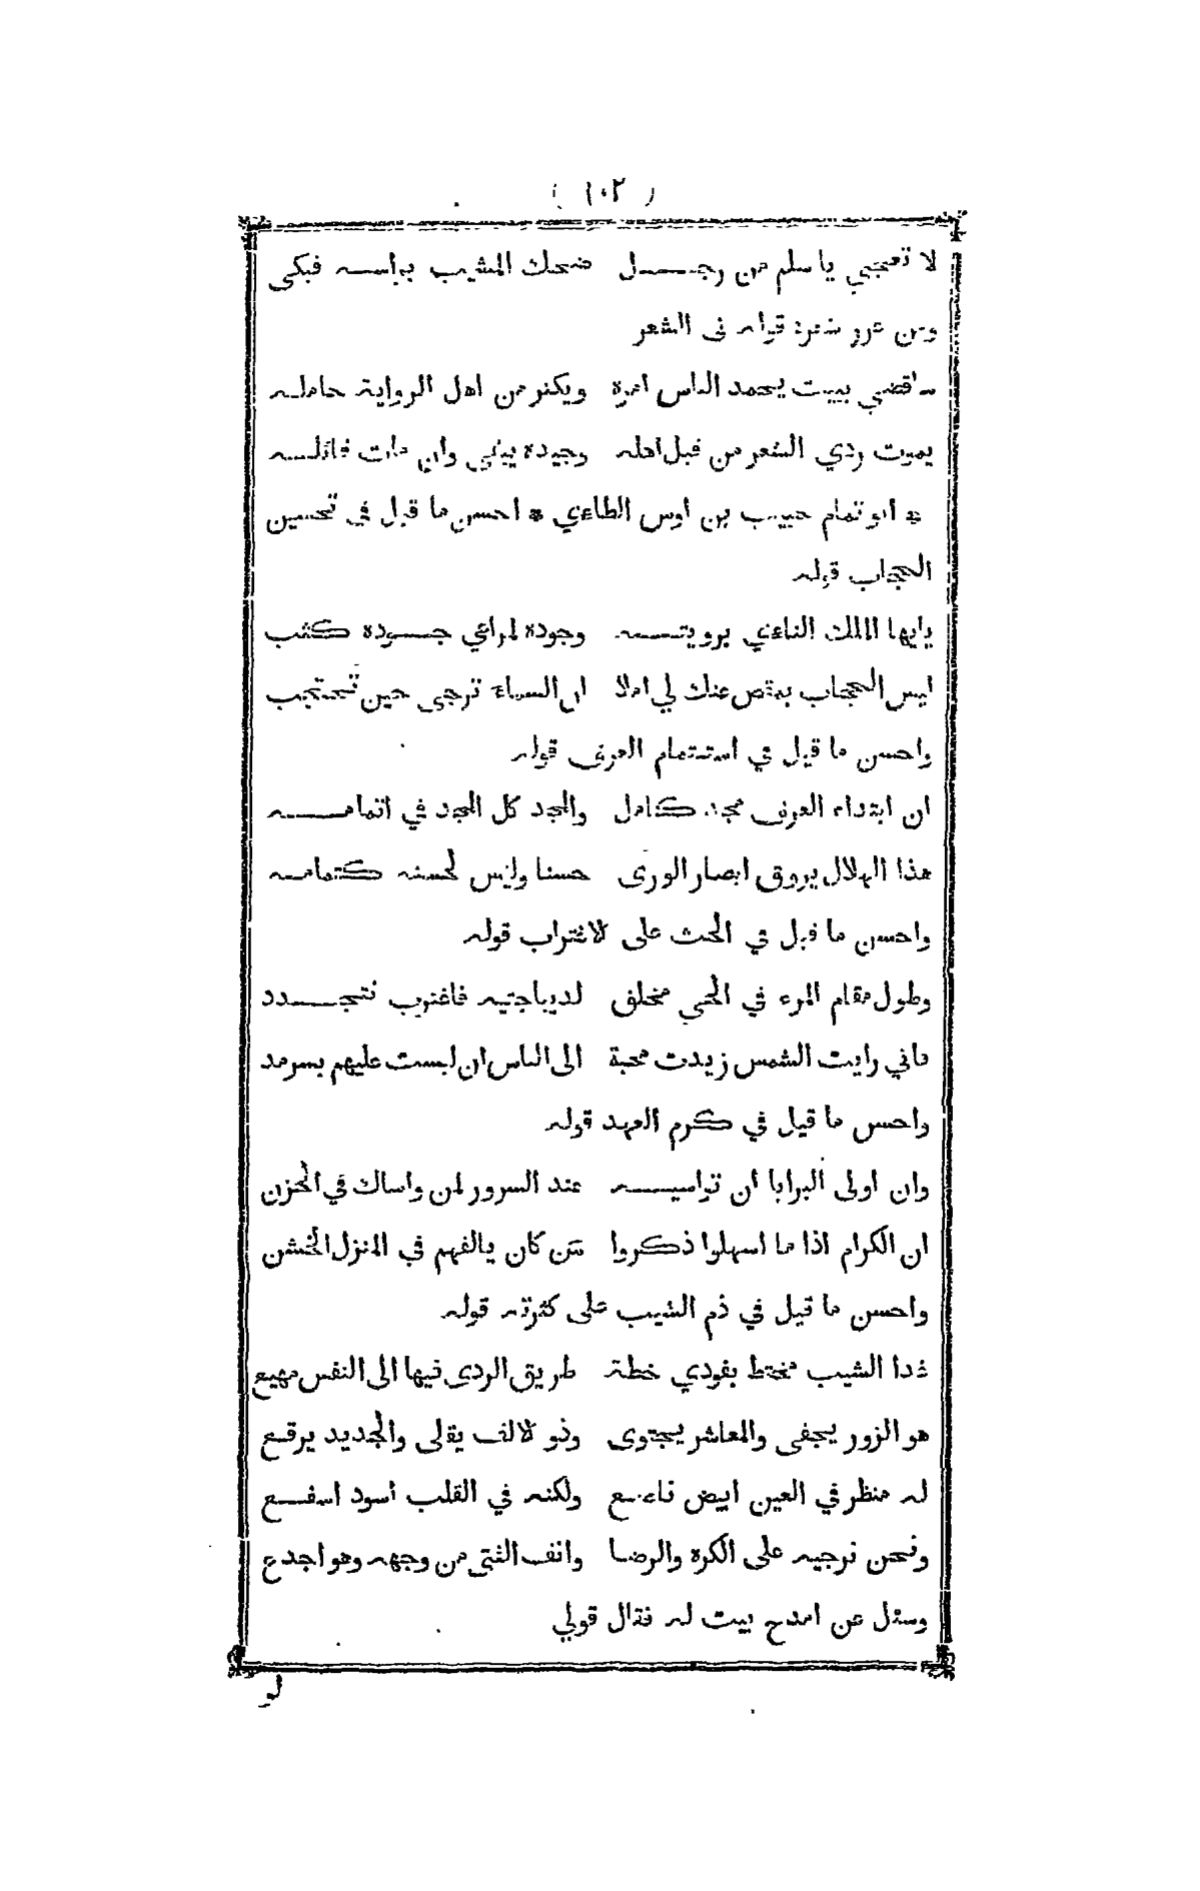 ( ١٠٢ )
لا تعجبي يا سلم من رجـــل ضحك المشيب براسـه فبكى
ومن غرر شعره قوله في الشعر
ساقضي ببيت يحمد الناس امره ويكثر من اهل الرواية حاملـه
يموت ردي الشعر من قبل اهله وجيده يبقى وان مات قائلـــه
* ابو تمام حبيب بن اوس الطاءي * احسن ما قيل في تحسين
الحجاب قوله
يايها الملك الناءي برويتـــه وجوده لمراعي جـــوده كثب
ليس الحجاب بمقص عنك لي املا ان السماء ترجى حين تحتجب
واحسن ما قيل في استتمام العرف قوله
ان ابتداء العرف مجد كامل والمجد كل المجد في اتمامــــه
هذا الهلال يروق ابصار الورى حسنا وليس لحسنه كتمامـه
واحسن ما قيل في الحث على لاغتراب قوله
وطول مقام المرء في الحي مخلق لديباجتيه فاغترب تتجـــدد
فاني رايت الشمس زيدت محبة الى الناس ان ليست عليهم بسرمد
واحسن ما قيل في كرم العهد قوله
وان اولى البرايا ان تواسيـــه عند السرور لمن واساك في الحزن
ان الكرام اذا ما اسهلوا ذكروا من كان يالفهم في المنزل الخشن
واحسن ما قيل في ذم الشيب على كثرته قوله
غدا الشيب مختط بفودي خطة طريق الردى فيها الى النفس مهيع
هو الزور يجفى والمعاشر يجتوى وذو لالف يقلى والجديد يرقـع
له منظر في العين ابيض ناصـع ولكنه في القلب اسود اسفـــع
ونحن نرجيه على الكره والرضـا وانف الفتى من وجهه وهو اجدع
وسئل عن امدح بيت له فقال قولي
لو